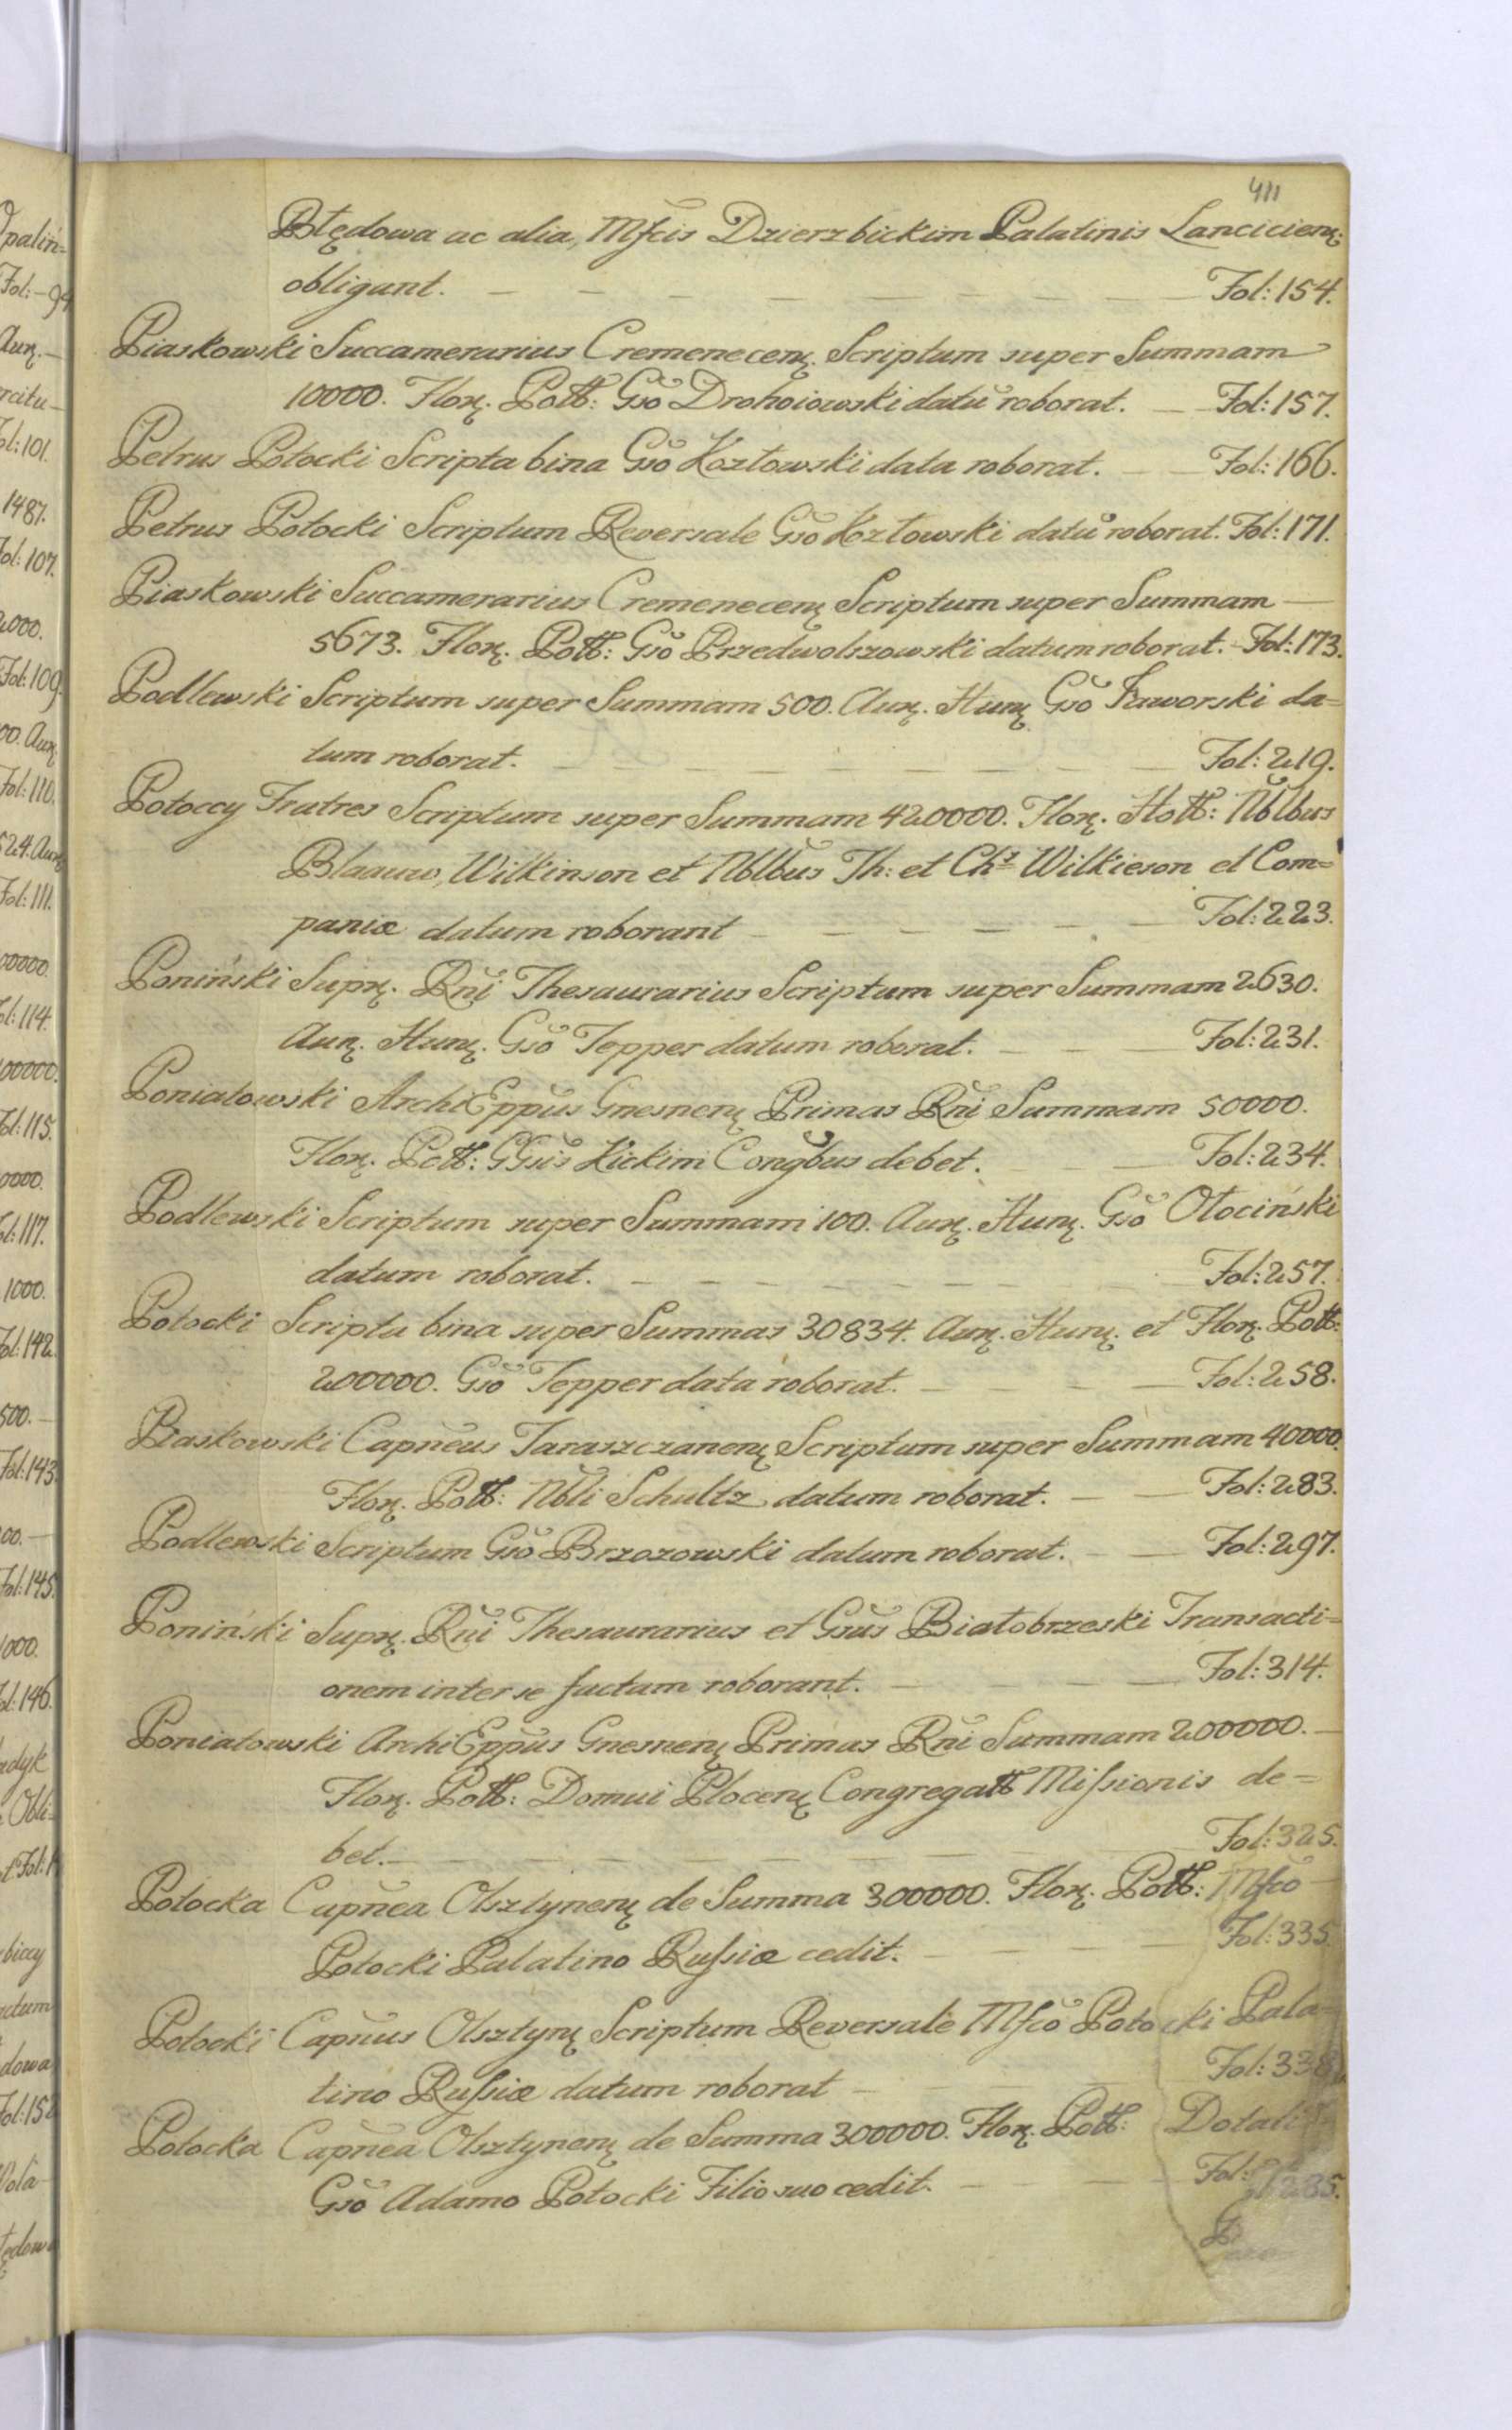 411
Błędowa ac alia, Mfcis Dzierzbickim Palatinis Lancicien:
obligant. Fol: 154.
Piaskowski Succamerarius Cremenecen. Scriptum super Summam
10000. Flor. Poll: Gso Drohoiowski datū roborat. Fol: 157.
Petrus Potocki Scripta bina Gso Kozłowski data roborat. Fol: 166.
Petrus Potocki Scriptum Reversale Gso Kozłowski datū roborat. Fol: 171.
Piaskowski Succamerarius Cremenecen Scriptum super Summam
5673. Flor. Poll: Gso Przedwolszowski datum roborat. Fol: 173.
Podlewski Scriptum super Summam 500. Aur. Hun. Gso Jaworski da=
tum roborat. Fol: 219.
Potoccy Fratres Scriptum super Summam 420000. Flor. Holl: Nblbus
Blaauw, Wilkinson et Nblbus Th: et Chs Wilkieson et Com=
paniæ datum roborant Fol: 223.
Poniński Supr. Rni Thesaurarius Scriptum super Summam 2630.
Aur. Hun. Gso Tepper datum roborat. Fol: 231.
Poniatowski ArchiEppus Gnesnen Primas Rni Summam 50000.
Flor. Poll: GGsis Kickim Congbus debet. Fol: 234.
Podlewski Scriptum super Summam 100. Aur. Hun. Gso Otociński
datum roborat. Fol: 257.
Potocki Scripta bina super Summas 30834. Aur. Hun. et Flor. Poll:
200000. Gso Tepper data roborat. Fol: 258.
Piaskowski Capneus Taraszczanen Scriptum super Summam 40000.
Flor. Poll: Nbli Schultz datum roborat. Fol: 283.
Podlewski Scriptum Gso Brzozowski datum roborat. Fol: 297.
Poniński Supr. Rni Thesaurarius et Gsus Białobrzeski Transacti=
onem inter se factam roborant. Fol: 314.
Poniatowski ArchiEppus Gnesnen Primas Rni Summam 200000.
Flor. Poll: Domui Plocen Congregatt Missionis de=
bet. Fol: 325.
Potocka Capnea Olsztynen de Summa 300000. Flor. Poll: Mfco
Potocki Palatino Russiæ cedit. Fol: 335.
Potocki Capnus Olsztyn Scriptum Reversale Mfco Potocki Pala=
tino Russiæ datum roborat Fol: 338.
Potocka Capnea Olsztynen de Summa 300000. Flor. Poll:
Gso Adamo Potocki Filio suo cedit. Fol: